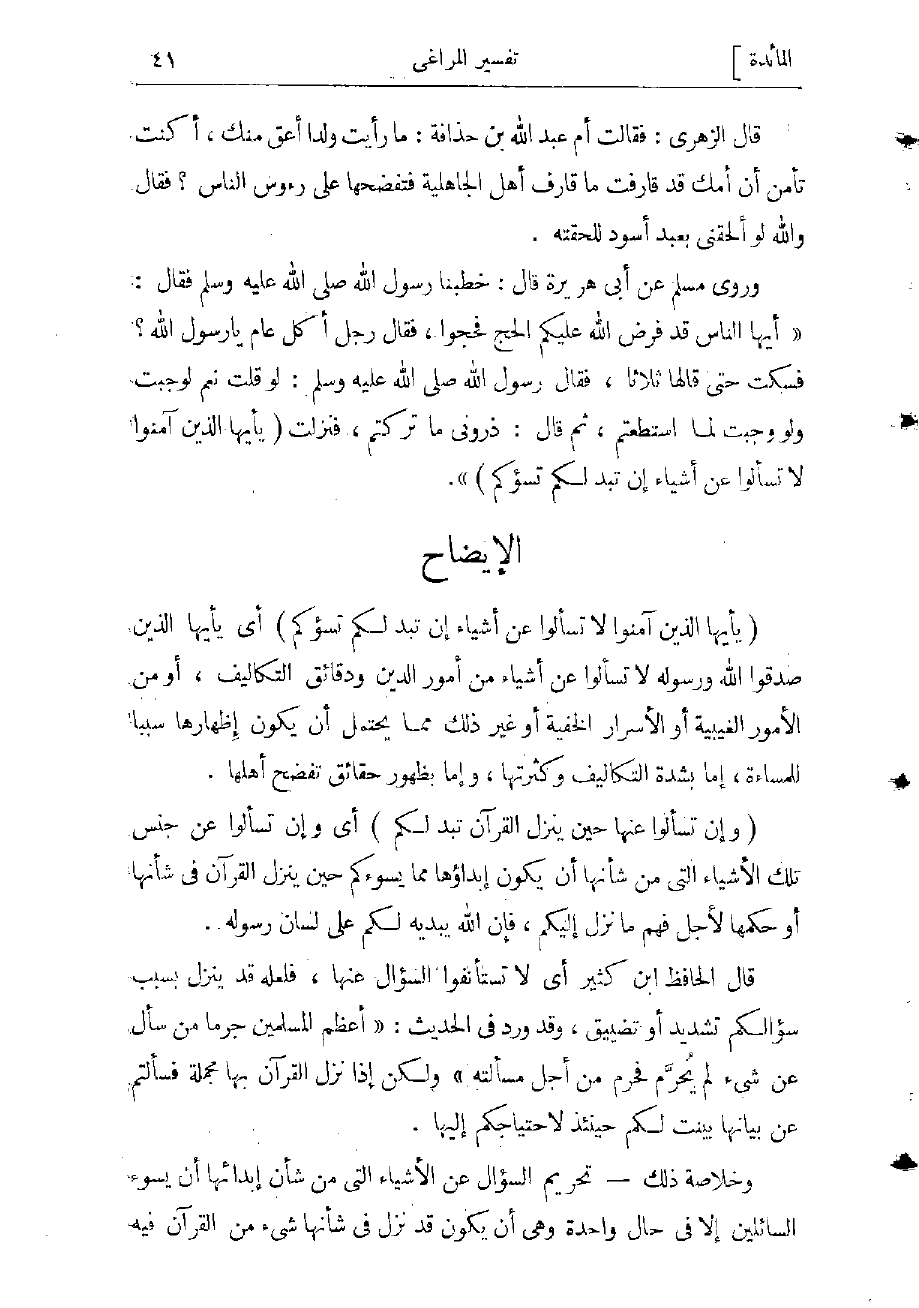 المائدة ] تفسير المراغى ٤١
قال الزهرى : فقالت أم عبد الله بن حذافة : ما رأيت ولدا أعق منك ، أكنت
تأمن أن أمك قد قارفت ما قارف أهل الجاهلية فتفضحها على رءوس الناس ؟ فقال
والله لو ألحقنى بعبد أسود للحقته .
وروى مسلم عن أبى هريرة قال : خطبنا رسول الله صلى الله عليه وسلم فقال :
« أيها الناس قد فرض الله عليكم الحج فحجوا ، فقال رجل أكل عام يارسول الله ؟
فسكت حتى قالها ثلاثا ، فقال رسول الله صلى الله عليه وسلم : لو قلت نعم لوجبت
ولو وجبت لما استطعتم ، ثم قال : ذرونى ما تركتم ، فنزلت ( يأيها الذين آمنوا
لا تسألوا عن أشياء إن تبد لكم تسؤكم ) » .
الإيضاح
( يأيها الذين آمنوا لا تسألوا عن أشياء إن تبد لكم تسؤكم ) أى يأيها الذين
صدقوا الله ورسوله لا تسألوا عن أشياء من أمور الدين ودقائق التكاليف ، أو من
الأمور الغيبية أو الأسرار الخفية أو غير ذلك مما يحتمل أن يكون إظهارها سببا
للمساءة ، إما بشدة التكاليف وكثرتها ، وإما بظهور حقائق تفضح أهلها .
( وإن تسألوا عنها حين ينزل القرآن تبد لكم ) أى وإن تسألوا عن جنس
تلك الأشياء التى من شأنها أن يكون إبداؤها مما يسوءكم حين ينزل القرآن فى شأنها
أو حكمها لأجل فهم ما نزل إليكم ، فإن الله يبديه لكم على لسان رسوله .
قال الحافظ ابن كثير أى لا تستأنفوا السؤال عنها ، فلعله قد ينزل بسبب
سؤالكم تشديد أو تضييق ، وقد ورد فى الحديث : « أعظم المسلمين جرما من سأل
عن شىء لم يُحرَّم فحرم من أجل مسألته » ولكن إذا نزل القرآن بها مجملة فسألتم
عن بيانها بينت لكم حينئذ لاحتياجكم إليها .
وخلاصة ذلك — تحريم السؤال عن الأشياء التى من شأن إبدائها أن يسوء
السائلين إلا فى حال واحدة وهى أن يكون قد نزل فى شأنها شىء من القرآن فيه